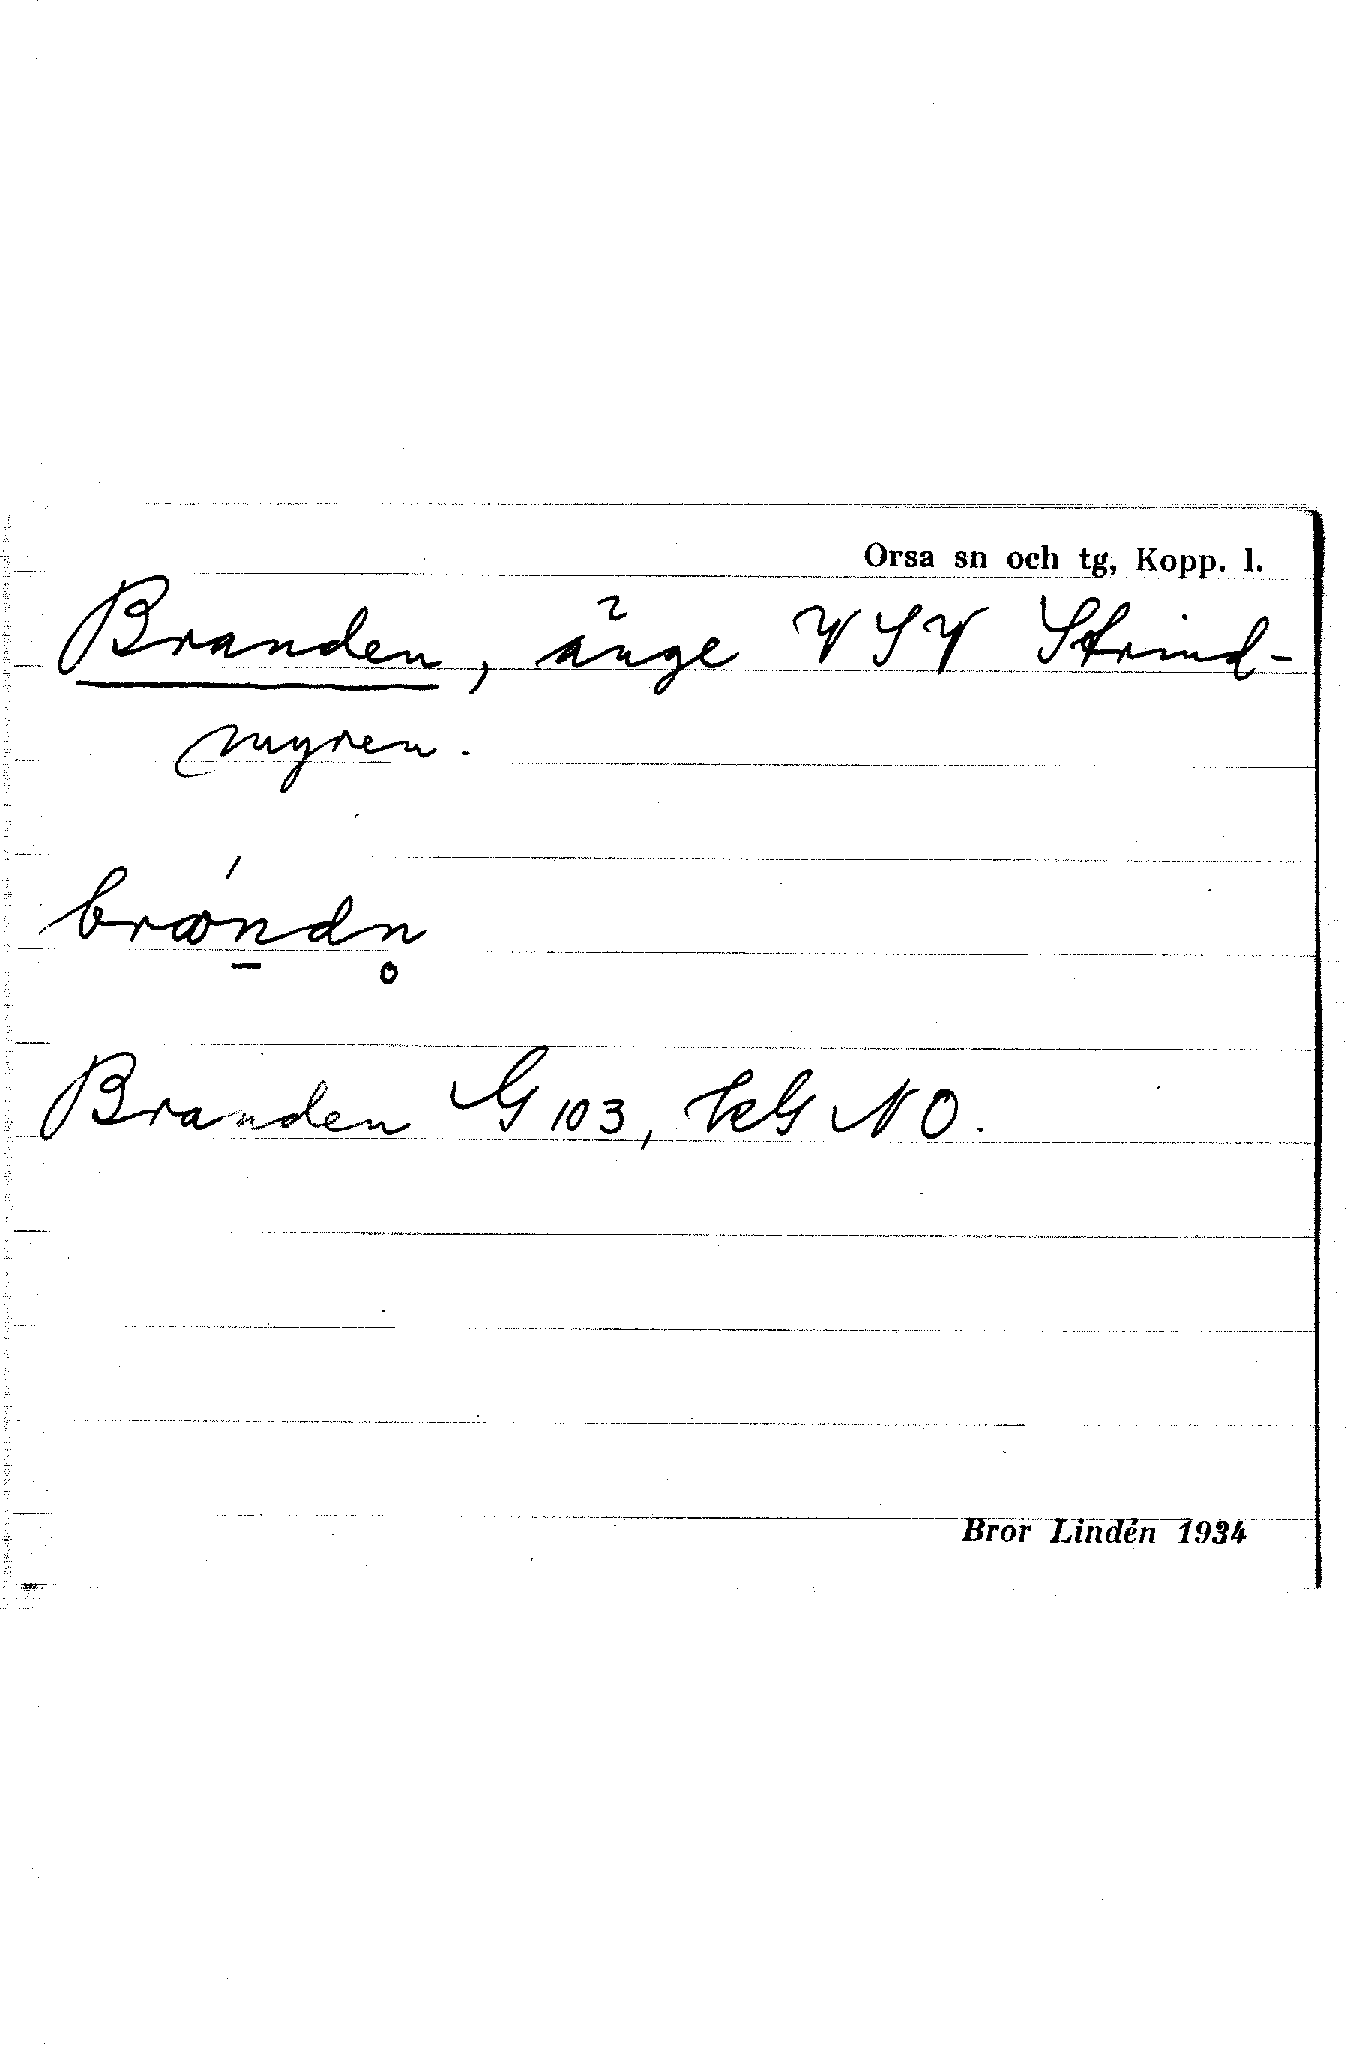 Orsa sn och tg, Kopp. l.
Branden, änge VSV Strind-
myren.
Branden G 103, kG NO.
Bror Lindén 1934